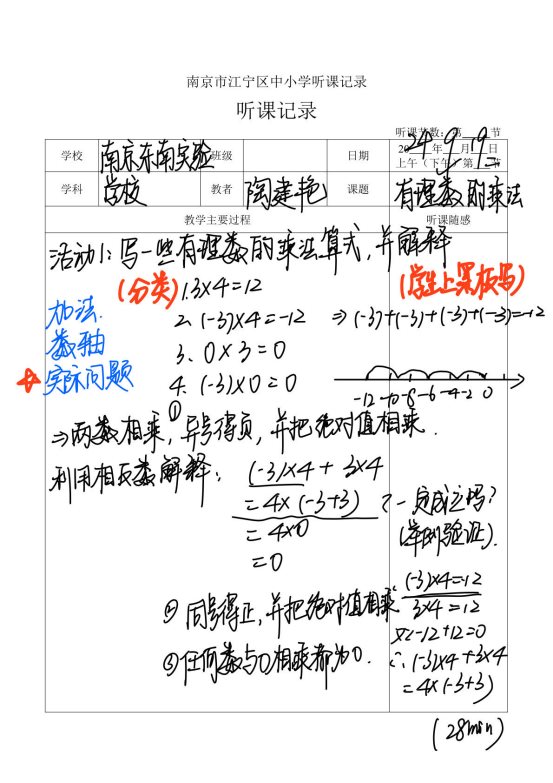 南京市江宁区中小学听课记录
听课记录
听课节数：第 节
学校 南京东南实验学校 班级 日期 2024年9月19日
上午（下午）第 2 节
学科 教者 陶建艳 课题 有理数的乘法
教学主要过程 听课随感
活动1：写一些有理数的乘法算式，并解释
(分类) 1. 3×4=12 (学生上黑板写)
加法. 2. (-3)×4=-12 ⇒(-3)+(-3)+(-3)+(-3)=-12
数轴 3. 0×3=0
☆实际问题 4. (-3)×0=0 -12 -10 -8 -6 -4 -2 0
⇒①两数相乘，异号得负，并把绝对值相乘.
利用相反数解释： (-3)×4+3×4
=4×(-3+3) ?一定成立吗?
=4×0 (举例验证).
=0
∵(-3)×4=-12
②同号得正，并把绝对值相乘 3×4=12
又∵-12+12=0
③任何数与0相乘都为0. ∴(-3)×4+3×4
=4×(-3+3)
(28min)